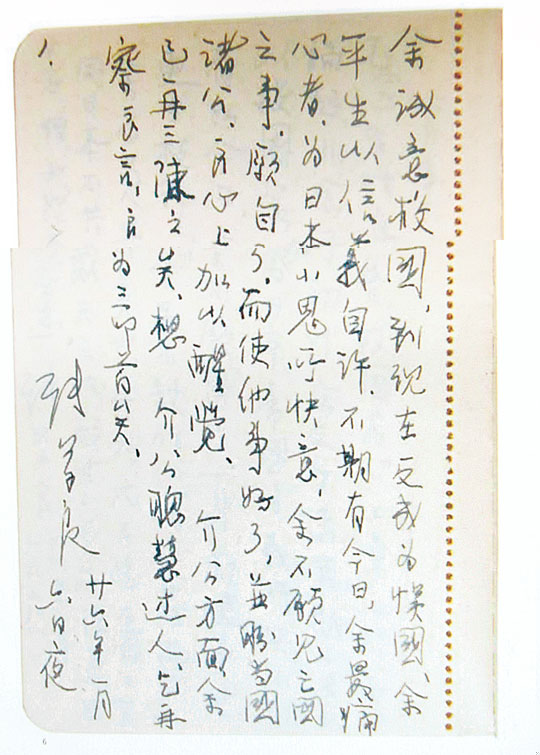 余誠意救國,到現在反成为悮國、余
平生以信義自許.不期有今日,余最痛
心者,为日本小鬼所快意,余不願见亡國
之事.願自了.而使他事好了.並盼当國
諸公、良心上加以醒覺、 介公方面余
已再三陳之矣、想 介公聰慧过人、乞再
察良言,良为三叩首矣、
張学良
廿六年一月
六日夜
1.
6